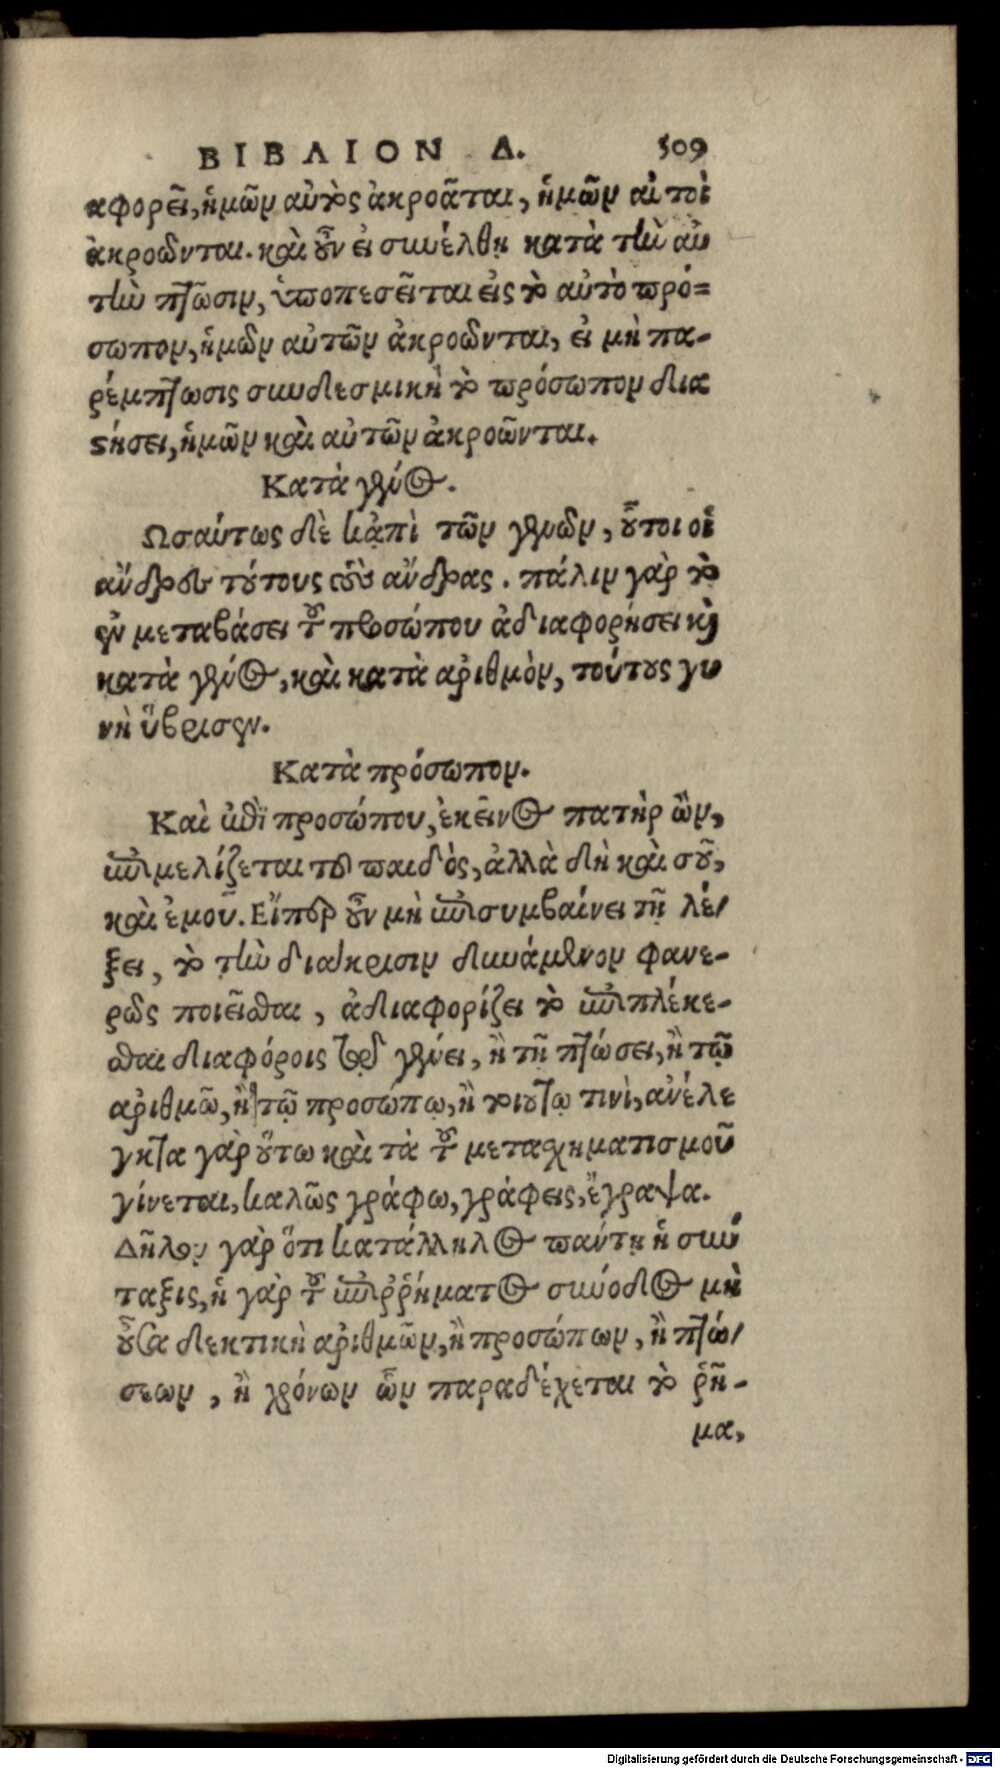 ΒΙΒΛΙΟΝ Δ. 509
αφορεῖ, ἡμῶν αὐτὸς ἀκροᾶται, ἡμῶν αὐτοὶ
ἀκροῶνται. καὶ οὖν εἰ συνέλθῃ κατὰ τὴν αὐ
τὴν πτῶσιν, ὑποπεσεῖται εἰς τὸ αὐτὸ πρό=
σωπον, ἡμῶν αὐτῶν ἀκροῶνται, εἰ μὴ πα-
ρέμπτωσις συνδεσμικὴ τὸ πρόσωπον δια
στήσει, ἡμῶν καὶ αὐτῶν ἀκροῶνται.
Κατὰ γένος.
Ωσαύτως δὲ κἀπὶ τῶν γενῶν, οὗτοι οἱ
ἄνδρες τούτους τοὺς ἄνδρας. πάλιν γὰρ τὸ
ἐν μεταβάσει τοῦ προσώπου ἀδιαφορήσει καὶ
κατὰ γένος, καὶ κατὰ ἀριθμὸν, τούτους γυ
νὴ ὕβρισεν.
Κατὰ πρόσωπον.
Καὶ ἐπὶ προσώπου, ἐκεῖνος πατὴρ ὢν,
ἐπιμελίζεται τοῦ παιδός, ἀλλὰ δὴ καὶ σοῦ,
καὶ ἐμοῦ. Εἴπερ οὖν μὴ ἐπισυμβαίνει τῇ λέ/
ξει, τὸ τὴν διάκρισιν δυνάμενον φανε-
ρῶς ποιεῖσθαι, ἀδιαφορίζει τὸ ἐπιπλέκε-
σθαι διαφόροις τῷ γένει, ἢ τῇ πτώσει, ἢ τῷ
ἀριθμῷ, ἢ τῷ προσώπῳ, ἢ τοιούτῳ τινὶ, ἀνέλε
γκτα γὰρ οὕτω καὶ τὰ τοῦ μετασχηματισμοῦ
γίνεται, καλῶς γράφω, γράφεις, ἔγραψα.
Δῆλον γὰρ ὅτι κατάλληλος πάντῃ ἡ σύν
ταξις, ἡ γὰρ τοῦ ἐπιῤῥήματος σύνοδος μὴ
οὖσα δεκτικὴ ἀριθμῶν, ἢ προσώπων, ἢ πτώ/
σεων, ἢ χρόνων ὧν παραδέχεται τὸ ῥῆ-
μα,
Digitalisierung gefördert durch die Deutsche Forschungsgemeinschaft - DFG